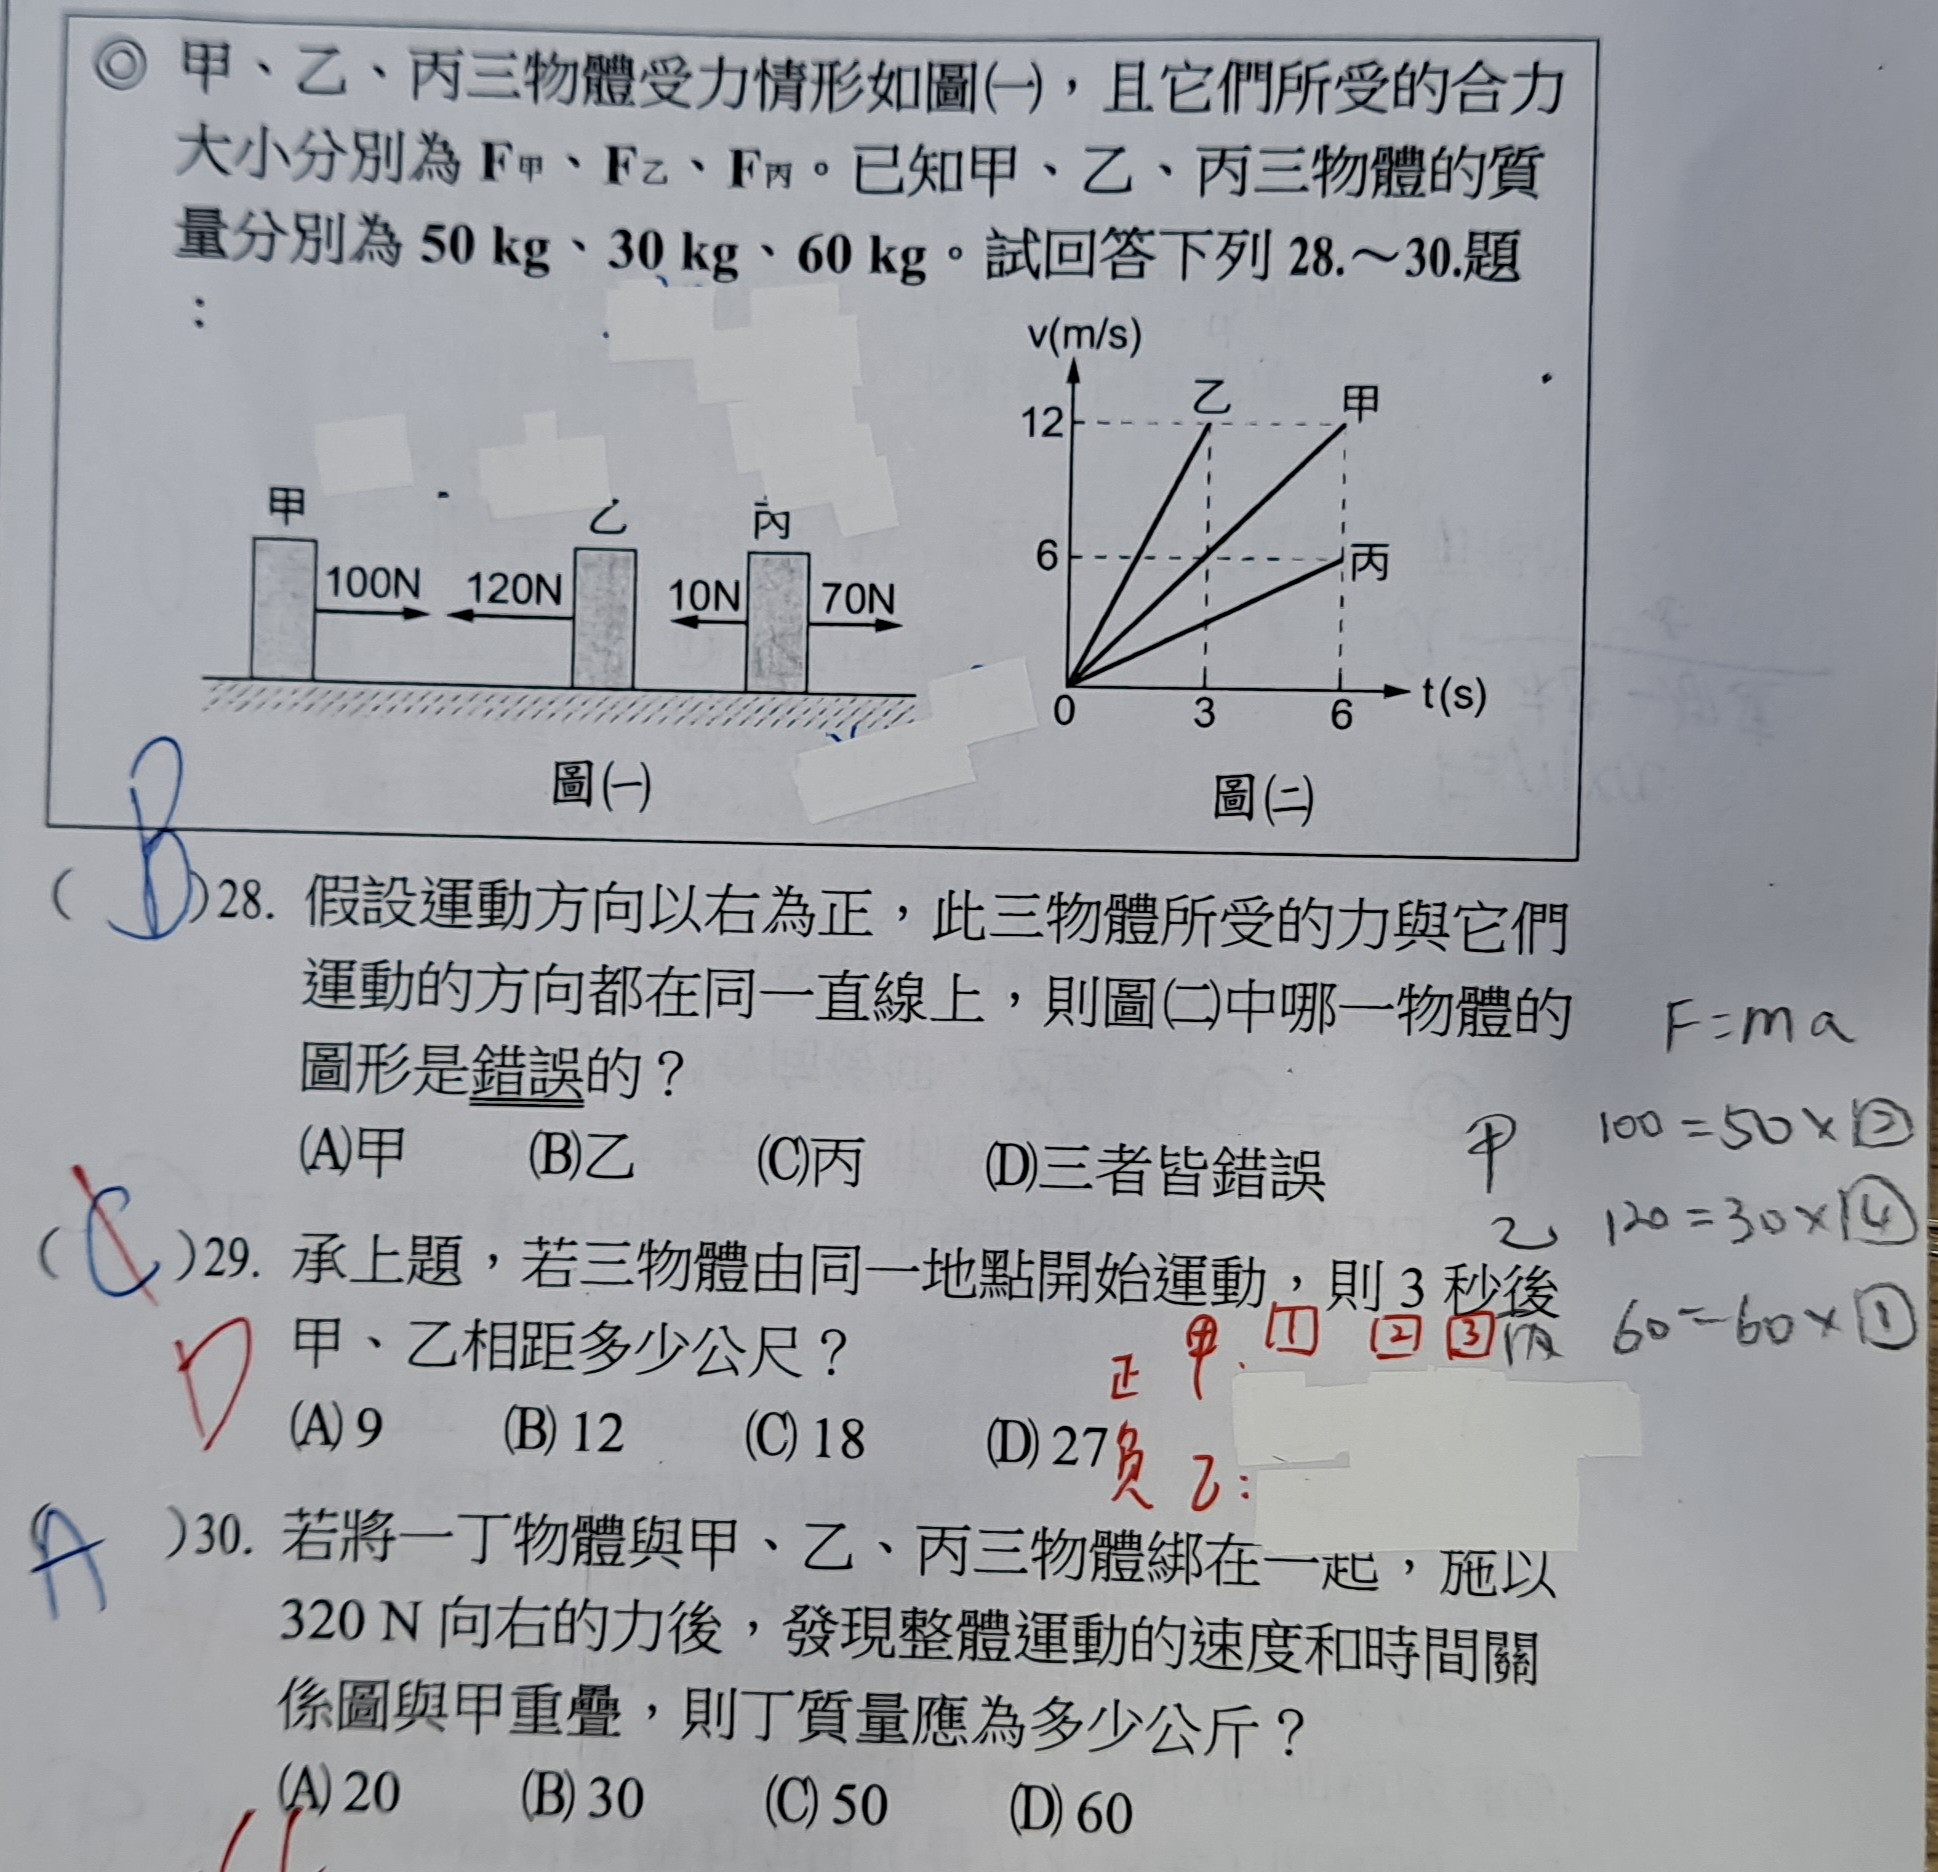 ◎ 甲、乙、丙三物體受力情形如圖㈠，且它們所受的合力
大小分別為 F甲、F乙、F丙。已知甲、乙、丙三物體的質
量分別為 50 kg、30 kg、60 kg。試回答下列 28.～30.題
：
甲
乙
丙
100N
120N
10N
70N
圖㈠
v(m/s)
12
乙
甲
6
丙
0
3
6
t(s)
圖㈡
( B )28. 假設運動方向以右為正，此三物體所受的力與它們
運動的方向都在同一直線上，則圖㈡中哪一物體的
圖形是錯誤的？
(A)甲 (B)乙 (C)丙 (D)三者皆錯誤
F=ma
甲 100=50×2
乙 120=30×4
丙 60=60×1
( C )29. 承上題，若三物體由同一地點開始運動，則 3 秒後
D
甲、乙相距多少公尺？
(A) 9 (B) 12 (C) 18 (D) 27
正 甲: 1 2 3
負 乙:
( A )30. 若將一丁物體與甲、乙、丙三物體綁在一起，施以
320 N 向右的力後，發現整體運動的速度和時間關
係圖與甲重疊，則丁質量應為多少公斤？
(A) 20 (B) 30 (C) 50 (D) 60